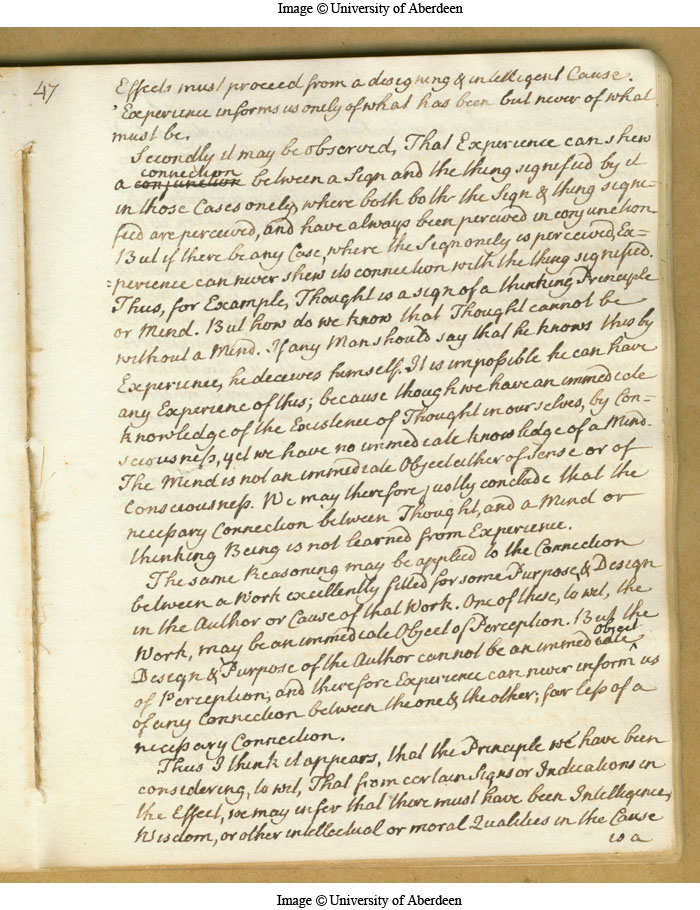 Image © University of Aberdeen
47
Effects must proceed from a designing & intelligent Cause.
Experience informs us onely of what has been but never of what
must be.
Secondly it may be observed, That Experience can shew
connection
a conjunction between a Sign and the thing signified by it
in those Cases onely, where both both the Sign & thing signi=
fied are perceived, and have always been perceived in conjunction
But if there be any Case, where the Sign onely is perceived, Ex=
=perience can never shew its connection with the thing signified.
Thus, for Example, Thought is a sign of a thinking Principle
or Mind. But how do we know that Thought cannot be
without a Mind. If any Man should say that he knows this by
Experience, he deceives himself. It is impossible he can have
any Experience of this; because though we have an immediate
knowledge of the Existence of Thought in our selves, by Con=
sciousness, yet we have no immediate knowledge of a Mind.
The Mind is not an immediate Object either of sense or of
Consciousness. We may therefore justly conclude that the
necessary Connection between Thought, and a Mind or
thinking Being is not learned from Experience.
The same Reasoning may be applied to the Connection
between a Work excellently fitted for some Purpose, & Design
in the Author or Cause of that Work. One of these, to wit, the
Work, may be an immediate Object of Perception. But the
Design & Purpose of the Author cannot be an immediate
Object
of Perception; and therefore Experience can never inform us
of any Connection between the one & the other; far less of a
necessary Connection.
Thus I think it appears, that the Principle we have been
considering, to wit, That from certain Signs or Indications in
the Effect, we may infer that there must have been Intelligence,
Wisdom, or other intellectual or moral Qualities in the Cause
is a
Image © University of Aberdeen